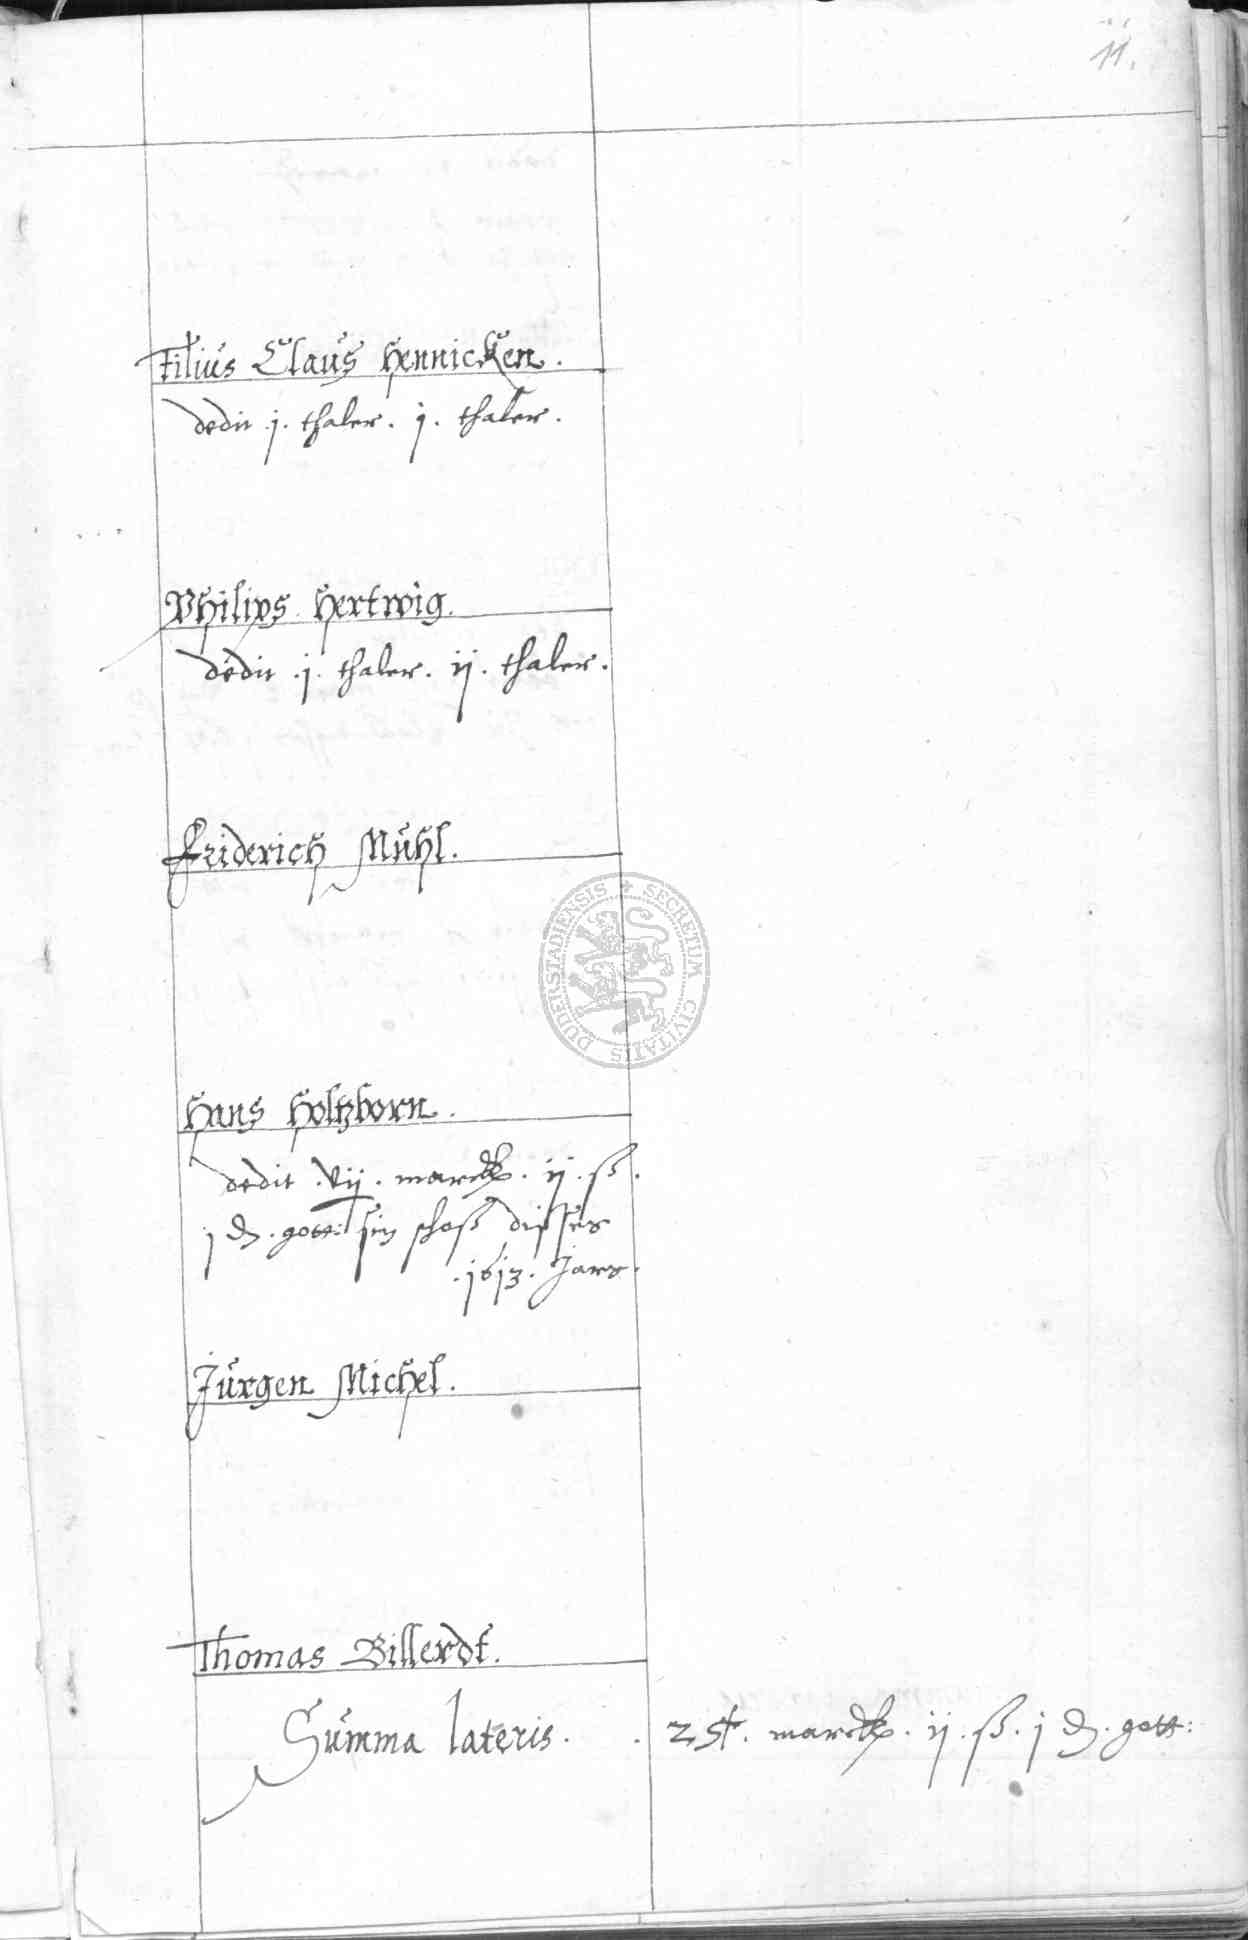 11.
Filius Claus Hennicken.
dedit .j. thaler. j. thaler.
Philips Hertwig.
dedit .j. thaler. ij. thaler.
Friderich Mühl.
DUDERSTADIENSIS ✶ SECRETUM CIVITATIS
Hans Holtzborn.
dedit .vij. marck. ij. ß.
j d. gott: sin schoß disser
.1613. Jars.
Jürgen Michel.
Thomas Billerdt.
Summa lateris. . marck. ij. ß. j d. gott: